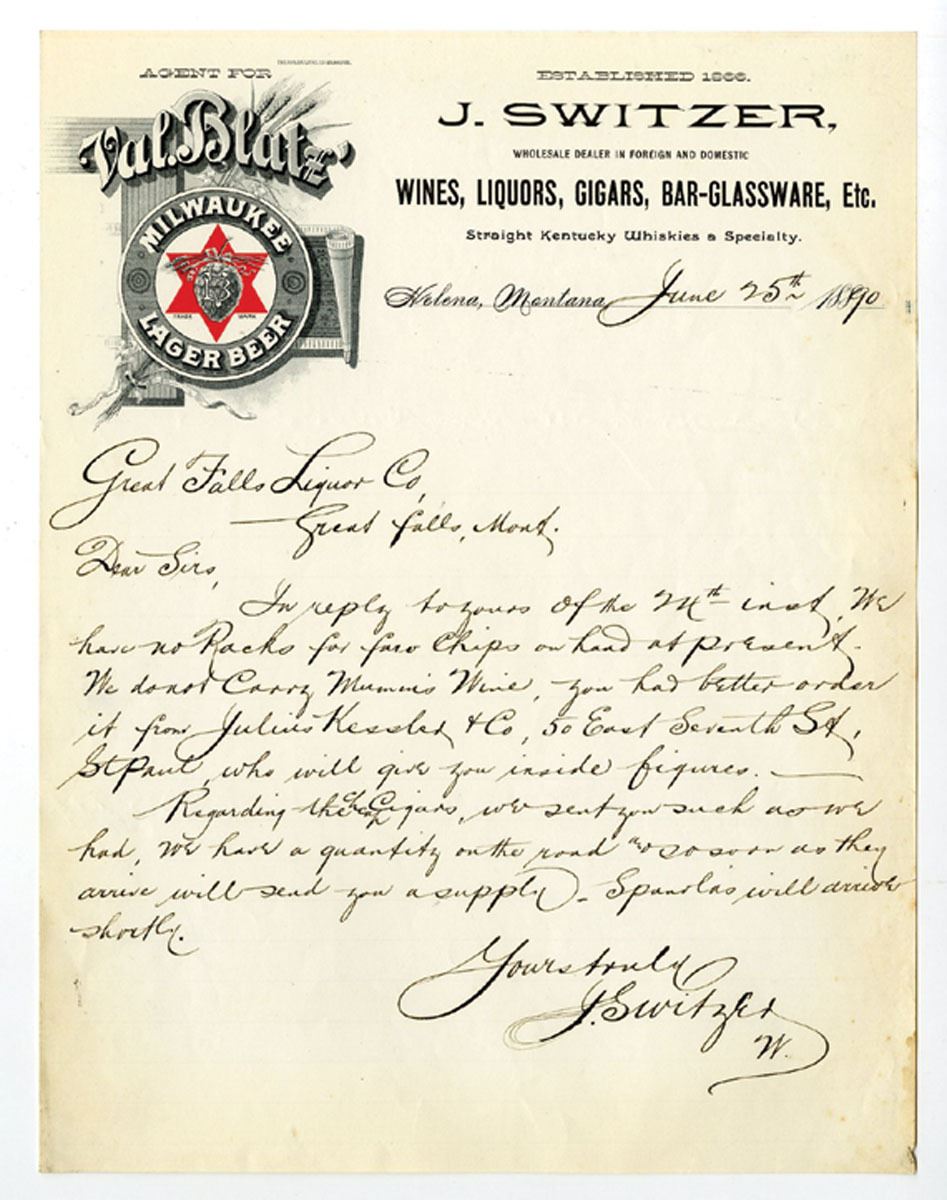 AGENT FOR
Val. Blatz'
MILWAUKEE
B
TRADE MARK
LAGER BEER
ESTABLISHED 1866.
J. SWITZER,
WHOLESALE DEALER IN FOREIGN AND DOMESTIC
WINES, LIQUORS, GIGARS, BAR-GLASSWARE, Etc.
Straight Kentucky Whiskies a Specialty.
Helena, Montana, June 25th 1890
Great Falls Liquor Co,
Great Falls, Mont.
Dear Sirs,
In reply to yours of the 24th inst, We
have no Racks for faro Chips on hand at present.
We do not Carry Mumm's Wine, you had better order
it from Julius Kessler & Co, 50 East Seventh St,
St Paul, who will give you inside figures.
Regarding the Cigars, we sent you such as we
had, We have a quantity on the road so soon as they
arrive will send you a supply. Spanolas will arrive
shortly.
Yours truly
J. Switzer
W.